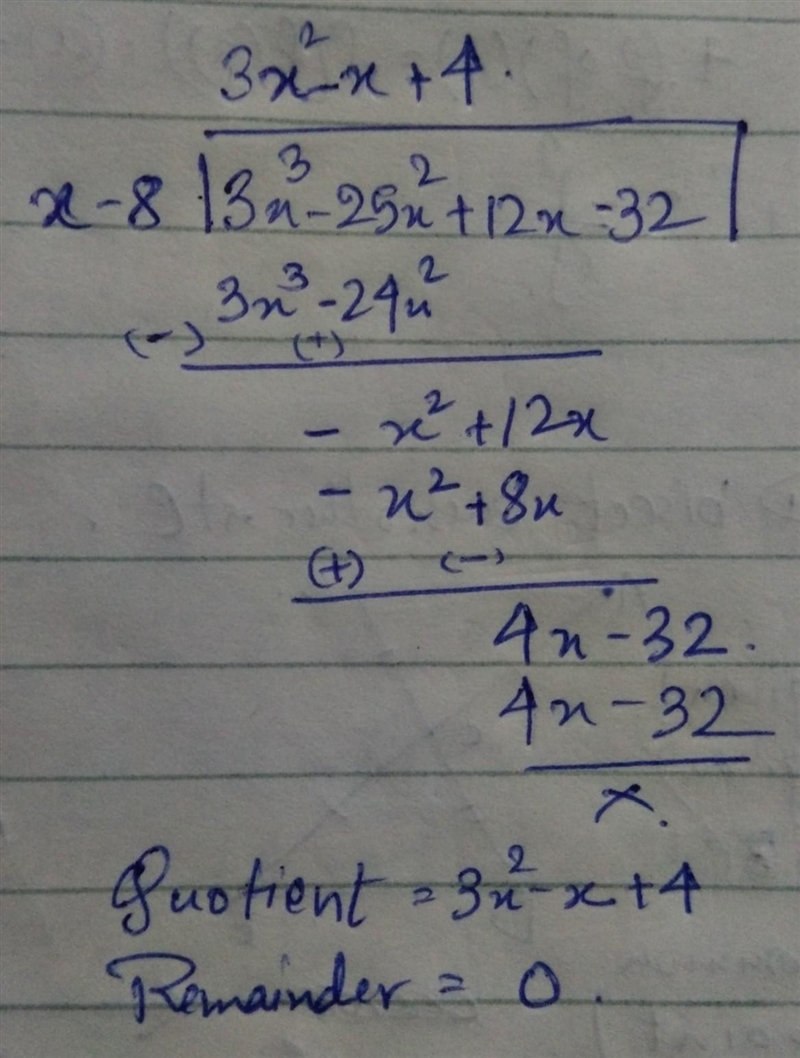 3x² - x + 4.
x - 8 | 3x³ - 25x² + 12x - 32 |
3x³ - 24x²
(-) (+)
- x² + 12x
- x² + 8x
(+) (-)
4x - 32.
4x - 32
×.
Quotient = 3x² - x + 4
Remainder = 0.